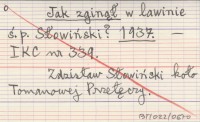 Jak zginął w lawinie
ś.p. Słowiński? 1937. —
IKC nr 339.
Zdzisław Słowiński koło
Tomanowej Przełęczy.